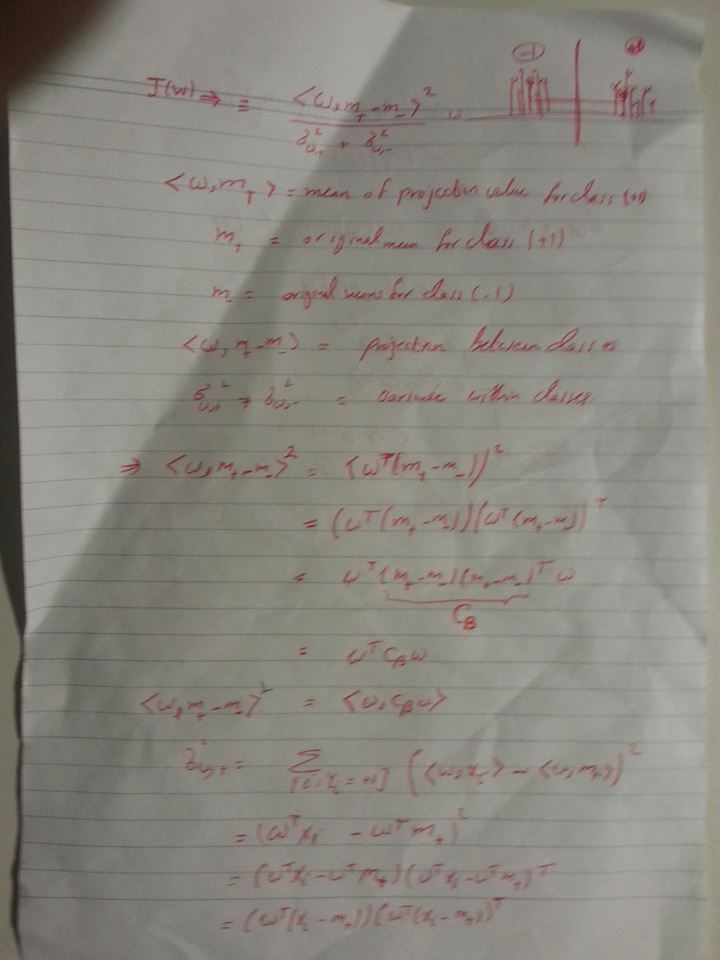 J(w) ⇒ ≡ <ω, m₊ - m₋>² / ω (-1) (+1)
δ²ω,₊ + δ²ω,₋
<ω, m₊> = mean of projection value for class (+1)
m₊ = original mean for class (+1)
m₋ = orginal means for class (-1)
<ω, m₊ - m₋> = projection between classes
δ²ω,₊ + δ²ω,₋ = variance within classes
⇒ <ω, m₊ - m₋>² = (ωᵀ(m₊ - m₋))²
= (ωᵀ(m₊ - m₋))(ωᵀ(m₊ - m₋))ᵀ
= ωᵀ(m₊ - m₋)(m₊ - m₋)ᵀ ω
C_B
= ωᵀ C_B ω
<ω, m₊ - m₋>² = <ω, C_B ω>
δ²ω,₊ = Σ (<ω, xᵢ> - <ω, m₊>)²
{i: yᵢ = +1}
= (ωᵀxᵢ - ωᵀm₊)²
= (ωᵀxᵢ - ωᵀm₊)(ωᵀxᵢ - ωᵀm₊)ᵀ
= (ωᵀ(xᵢ - m₊))(ωᵀ(xᵢ - m₊))ᵀ